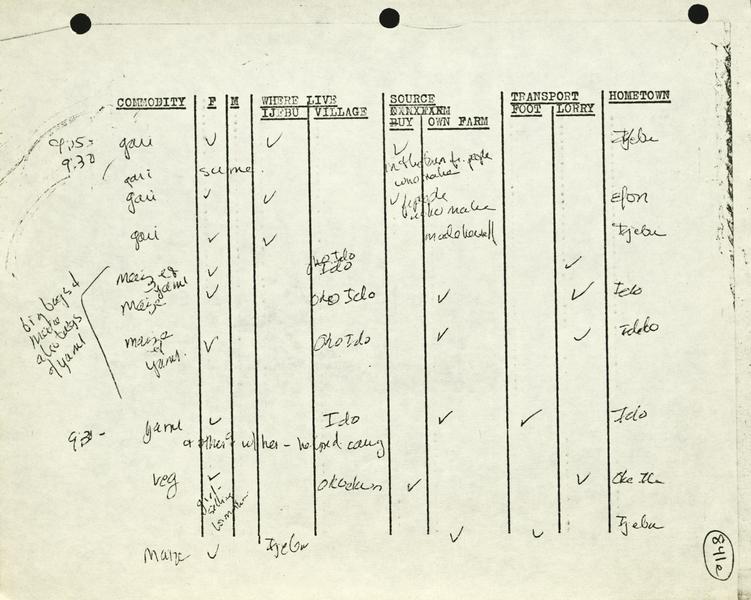 COMMODITY F M WHERE LIVE SOURCE TRANSPORT HOMETOWN
IJEBU VILLAGE BUY OWN FARM FOOT LORRY
9:15-
9:30
gari ✓ ✓ ✓ Ijebu
in the town fr. people
who make
gari same
gari ✓ ✓ ✓ fr people Efon
who make
gari ✓ ✓ Ijebu
Oko Ido
maize & ✓ Ido ✓
yams
maize ✓ Oko Ido ✓ ✓ Ido
big bags of
maize
also bags
of yams
maize ✓ Oko Ido ✓ ✓
& yams.
9:30- yams ✓ Ido ✓ ✓ Ido
& others w/ her - helped carry
veg ✓ ✓ ✓
girl-
selling
Ijebu
maize ✓ Ijebu ✓ ✓
841e